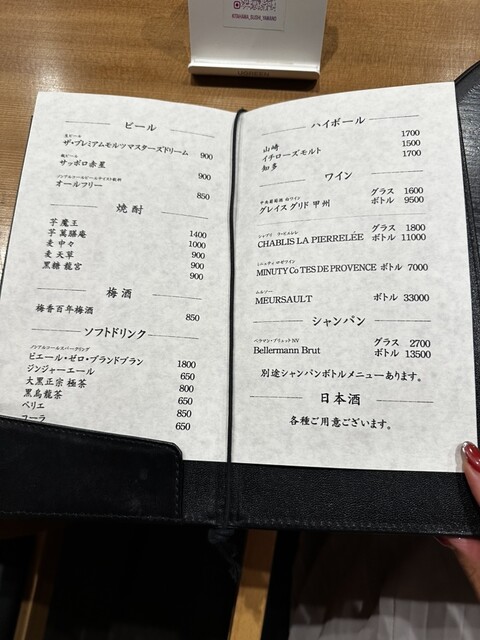 KITAHAMA_SUSHI_YAMATO
ビール
生ビール
ザ・プレミアムモルツマスターズドリーム 900
瓶ビール
サッポロ赤星 900
ノンアルコールビールテイスト飲料
オールフリー 850
焼酎
芋 魔王 1400
芋 萬膳庵 1000
麦 中々 900
麦 天草 900
黒糖 龍宮 900
梅酒
梅香百年梅酒 850
ソフトドリンク
ノンアルコールスパークリング
ピエール・ゼロ・ブランドブラン 1800
ジンジャーエール 650
大黒正宗 極茶 800
黒烏龍茶 650
ペリエ 850
コーラ 650
ハイボール
山崎 1700
イチローズモルト 1500
知多 1700
ワイン
中央葡萄酒 白ワイン
グレイス グリド 甲州 グラス 1600
ボトル 9500
シャブリ ラ・ピエレレ
CHABLIS LA PIERRELÉE グラス 1800
ボトル 11000
ミニュティ ロゼワイン
MINUTY Co TES DE PROVENCE ボトル 7000
ムルソー
MEURSAULT ボトル 33000
シャンパン
ベルマン・ブリュット NV
Bellermann Brut グラス 2700
ボトル 13500
別途シャンパンボトルメニューあります。
日本酒
各種ご用意ございます。